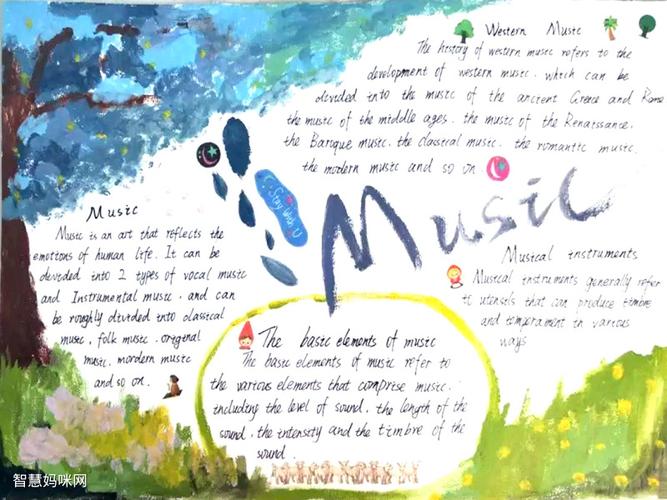 Western Music
The history of western music refers to the
development of western music. which can be
divided into the music of the ancient Greece and Rome
the music of the middle ages. the music of the Renaissance.
the Baroque music. the classical music. the romantic music.
the modern music and so on
Stay With U
Music
Music
Music is an art that reflects the
emotions of human life. It can be
devided into 2 types of vocal music
and Instrumental music. and can
be roughly divided into classical
music, folk music. original
music. mordern music
and so on.
Musical instruments
Musical instruments generally refer
to utensils that can produce timbre
and temperament in various
ways
The basic elements of music
The basic elements of music refer to
the various elements that comprise music.
including the level of sound. the length of the
sound. the intensity and the timbre of the
sound.
智慧妈咪网